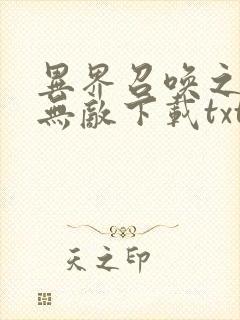 異界召喚之
無敵下載txt
天之印